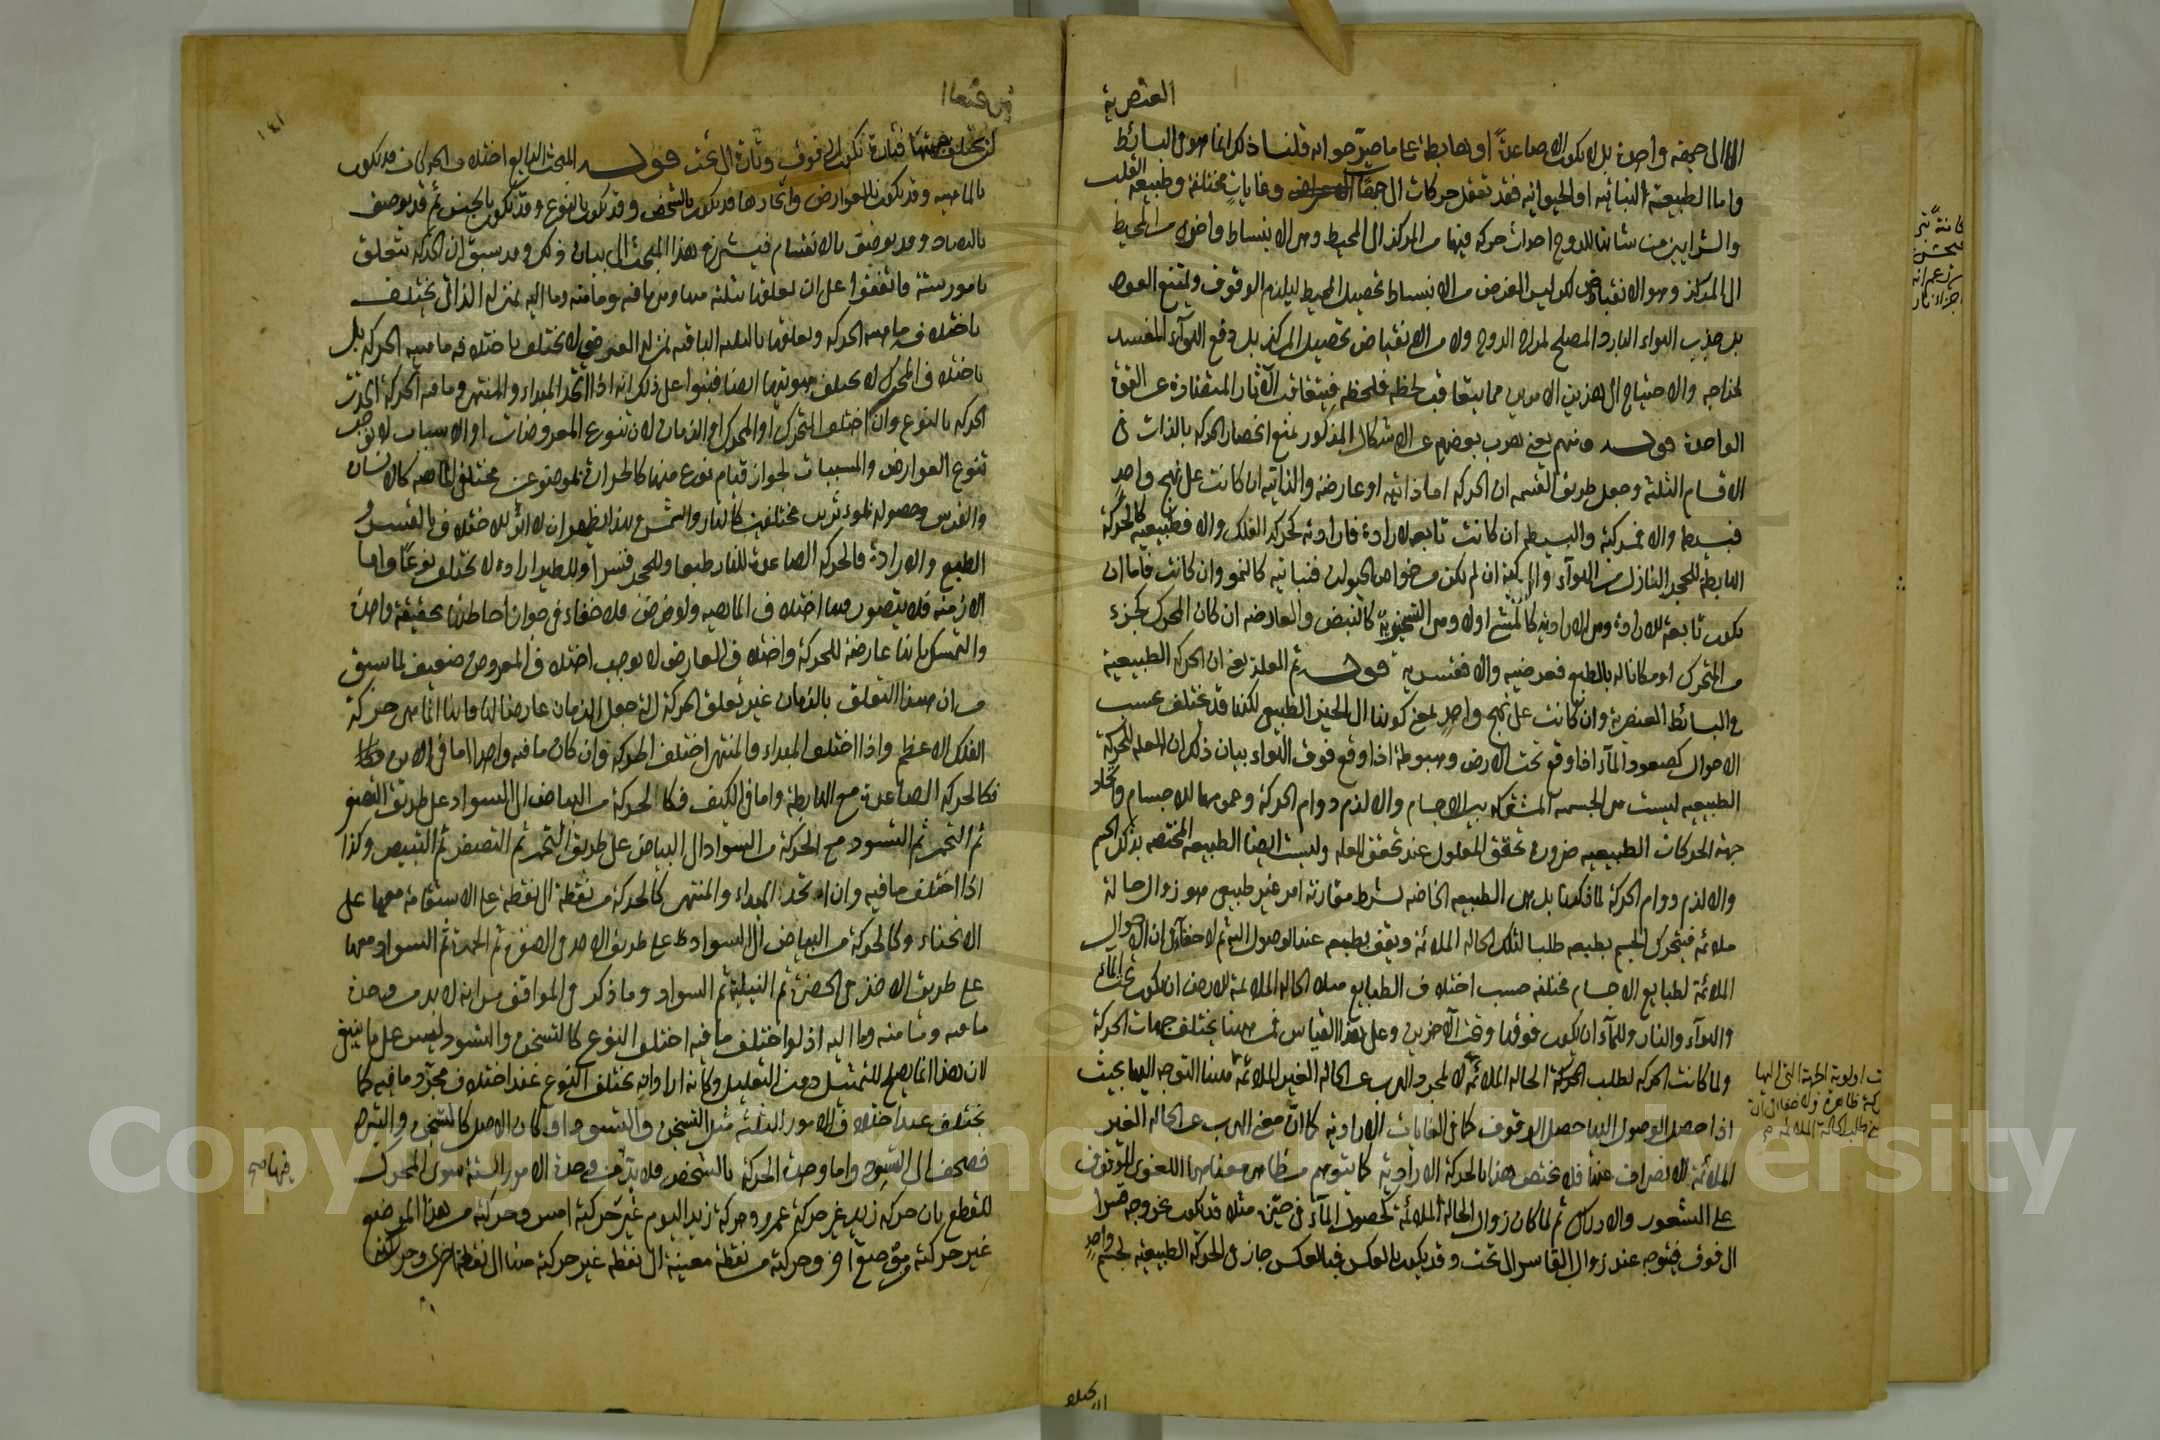 العنصرية
الا الى جهة واحدة بل لا يكون الا صاعدة او هابطة على ما صرحوا به قلنا ذلك انما هو في البسائط
واما الطبيعة النباتية او الحيوانية فقد تفعل حركات الى جهات وغايات مختلفة وطبيعة القلب
والشرايين من شانها للروح احداث حركة فيها من المركز الى المحيط وهي الانبساط واخرى من المحيط
الى المركز وهو الانقباض لكن ليس الغرض من الانبساط تحصيل المحيط ليلزم الوقوف ويمتنع العود
بل جذب الهواء البارد المصلح لمزاج الروح ولا من الانقباض تحصيل المركز بل دفع الهواء المفسد
لمزاجه والاحتياج الى هذين الامرين مما يتعاقب لحظة فلحظة فيتعاقب الآثار المتضادة عن القوة
الواحدة قوله ومنهم يعني هرب بعضهم عن الاشكال المذكور بمنع انحصار الحركة بالذات في
الاقسام الثلثة وجعل طريق القسمة ان الحركة اما ذاتية او عارضة والذاتية ان كانت على نهج واحد
فبسيطة والا فمركبة والبسيطة ان كانت تابعة لارادة فارادية كحركة الفلك والا فطبيعية كالحركة
الهابطة للحجر النازل من الهواء والمركبة ان لم تكن من خواص الحيوان فنباتية كالنمو وان كانت فاما ان
يكون تابعة للارادة وهي الارادية كالمشي او لا وهي التسخيرية كالنبض والعارضة ان كان المتحرك كجزء
من المتحرك او مكانا له بالطبع فعرضية والا فقسرية قوله ثم العلة يعني ان الحركة الطبيعية
في البسائط العنصرية وان كانت على نهج واحد بمعنى كونها الى الحيز الطبيعي لكنها قد تختلف بحسب
الاحوال كصعود الماء اذا وقع تحت الارض وهبوطه اذا وقع فوق الهواء بيان ذلك ان العلة للحركة
الطبيعية ليست هي الجسمية المشتركة بين الاجسام والا لزم دوام الحركة وعمومها للاجسام واتحاد
جهة الحركات الطبيعية ضرورة تحقق المعلول عند تحقق العلة وليست ايضا الطبيعة المختصة بذلك الجسم
والا لزم دوام الحركة لما ذكرنا بل هي الطبيعة الخاصة بشرط مقارنة امر غير طبيعي هو زوال حالة
ملائمة فيتحرك الجسم بطبعه طلبا لتلك الحالة الملائمة ويقف بطبعه عند الوصول اليه ثم لا خفاء في ان الاحوال
الملائمة لطبايع الاجسام مختلفة حسب اختلاف الطبايع مثلا الحالة الملائمة للارض ان يكون تحت الماء
والهواء والنار وللماء ان يكون فوقها وتحت الآخرين وعلى هذا القياس فمن ههنا يختلف جهات الحركة
ولما كانت الحركة لطلب الحالة الملائمة لا لمجرد الهرب عن الحالة الغير الملائمة فمعنى التوجه اليها بحيث
اذا حصل الوصول اليها حصل الوقوف كما في الغايات الارادية كما ان معنى الهرب عن الحالة الغير
الملائمة الانصراف عنها فلا يختص هذا بالحركة الارادية كما يتوهم من ظاهر معناهما اللغوي الموقوف
على الشعور والادراك ثم لما كان زوال الحالة الملائمة كحصول الماء في حيزه مثلا قد يكون بخروجه قسرا
الى فوق فيتوجه عند زوال القاسر الى تحت وقد يكون بالعكس فبالعكس جاز في الحركة الطبيعية لجسم واحد
ان يختلف جهتها فتارة تكون الى فوق وتارة الى تحت قوله المبحث الرابع اختلاف الحركات قد يكون
بالماهية وقد تكون بالعوارض واتحادها قد يكون بالشخص وقد يكون بالنوع وقد يكون بالجنس ثم قد يوصف
بالتضاد وقد يوصف بالانقسام فيشرع هذا المبحث الى بيان ذلك وقد سبق ان الحركة تتعلق
بامور ستة فاتفقوا على ان تعلقها بثلثة منها وهي ما فيه وما منه وما اليه بمنزلة الذاتي يختلف
باختلافه ماهية الحركة وتعلقها بالثلثة الباقية بمنزلة العرضي لا يختلف باختلافه ماهية الحركة بل
باختلاف المحرك لا يختلف هويتها ايضا فبنوا على ذلك انه اذا اتحد المبداء والمنتهى وما فيه الحركة اتحدت
الحركة بالنوع وان اختلف المتحرك او المحرك او الزمان لان تنوع المعروضات او الاسباب لا يوجب
تنوع العوارض والمسببات لجواز قيام نوع منها كالحرارة بموضوعين مختلفي الماهية كالانسان
والفرس وحصوله بمؤثرين مختلفين كالنار والشمس وبهذا يظهر ان لا اثر للاختلاف بالقسر و
الطبع والارادة فالحركة الصاعدة للنار طبعا وللحجر قسرا وللطير ارادة لا تختلف نوعا واما
الازمنة فلا يتصور فيها اختلاف الماهية ولو فرض فلا خفاء في جواز احاطتها بحقيقة واحدة
والتمسك بانها عارضة للحركة واختلاف العارض لا يوجب اختلاف المعروض ضعيف لما سبق
من ان هذا التعلق بالزمان غير تعلق الحركة التي جعل الزمان عارضا لها فانها انما هي حركة
الفلك الاعظم واذا اختلف المبداء والمنتهى اختلف الحركة وان كان ما فيه واحدا اما في الاين
فكالحركة الصاعدة مع الهابطة واما في الكيف فكالحركة من البياض الى السواد على طريق التصفر
ثم التحمر ثم التسود مع الحركة من السواد الى البياض على طريق التحمر ثم التصفر ثم التبيض وكذا
اذا اختلف ما فيه وان اتحد المبداء والمنتهى كالحركة من نقطة الى نقطة على الاستقامة معها على
الانحناء وكالحركة من البياض الى السواد على طريق الاخذ في الصفرة ثم الحمرة ثم السواد معها
على طريق الاخذ في الخضرة ثم النيلية ثم السواد وما ذكر في المواقف من انه لا بد من وحدة
ما فيه وما منه وما اليه اذ لو اختلف ما فيه اختلف النوع كالتسخن والتسود ليس على ما ينبغي
لان هذا انما يصلح للتمثيل دون التعليل وكانه اراد انه يختلف النوع عند اختلاف مجرد ما فيه كما
يختلف عند اختلاف الامور الثلثة مثل التسخن والتسود او كان الاصل كالتسخن والتبرد
فصحف الى التسود واما وحدة الحركة بالشخص فلا بد من وحدة الامور الستة سوى المحرك
للقطع بان حركة زيد غير حركة عمرو وحركة زيد اليوم غير حركته امس وحركته من هذا الموضع
غير حركته من موضع آخر وحركته من نقطة معينة الى نقطة غير حركته منها الى نقطة اخرى وحركته